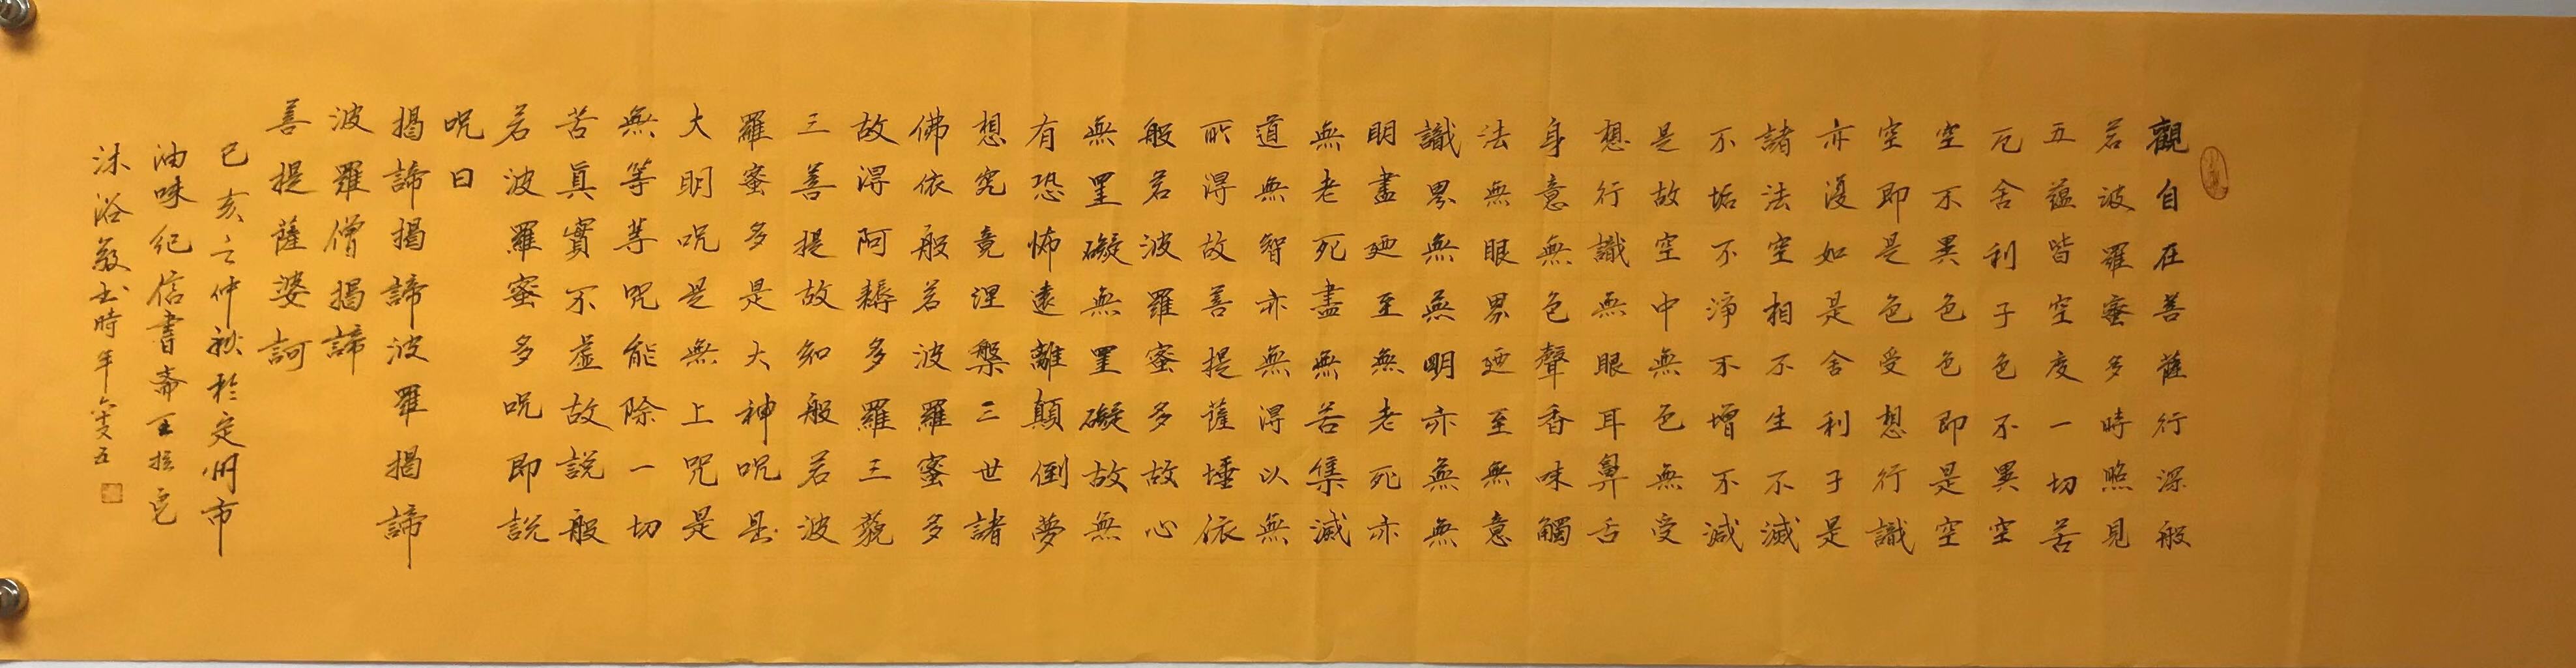 觀自在菩薩行深般
若波羅蜜多時照見
五蘊皆空度一切苦
厄舍利子色不異空
空不異色色即是空
空即是色受想行識
亦復如是舍利子是
諸法空相不生不滅
不垢不淨不增不減
是故空中無色無受
想行識無眼耳鼻舌
身意無色聲香味觸
法無眼界廼至無意
識界無無明亦無無
明盡廼至無老死亦
無老死盡無苦集滅
道無智亦無得以無
所得故菩提薩埵依
般若波羅蜜多故心
無罣礙無罣礙故無
有恐怖遠離顛倒夢
想究竟涅槃三世諸
佛依般若波羅蜜多
故得阿耨多羅三藐
三菩提故知般若波
羅蜜多是大神咒是
大明咒是無上咒是
無等等咒能除一切
苦真實不虛故說般
若波羅蜜多咒即說
咒曰
揭諦揭諦波羅揭諦
波羅僧揭諦
菩提薩婆訶
己亥之仲秋於定州市
油味紀信書齋王
沐浴敬书時年六十又五